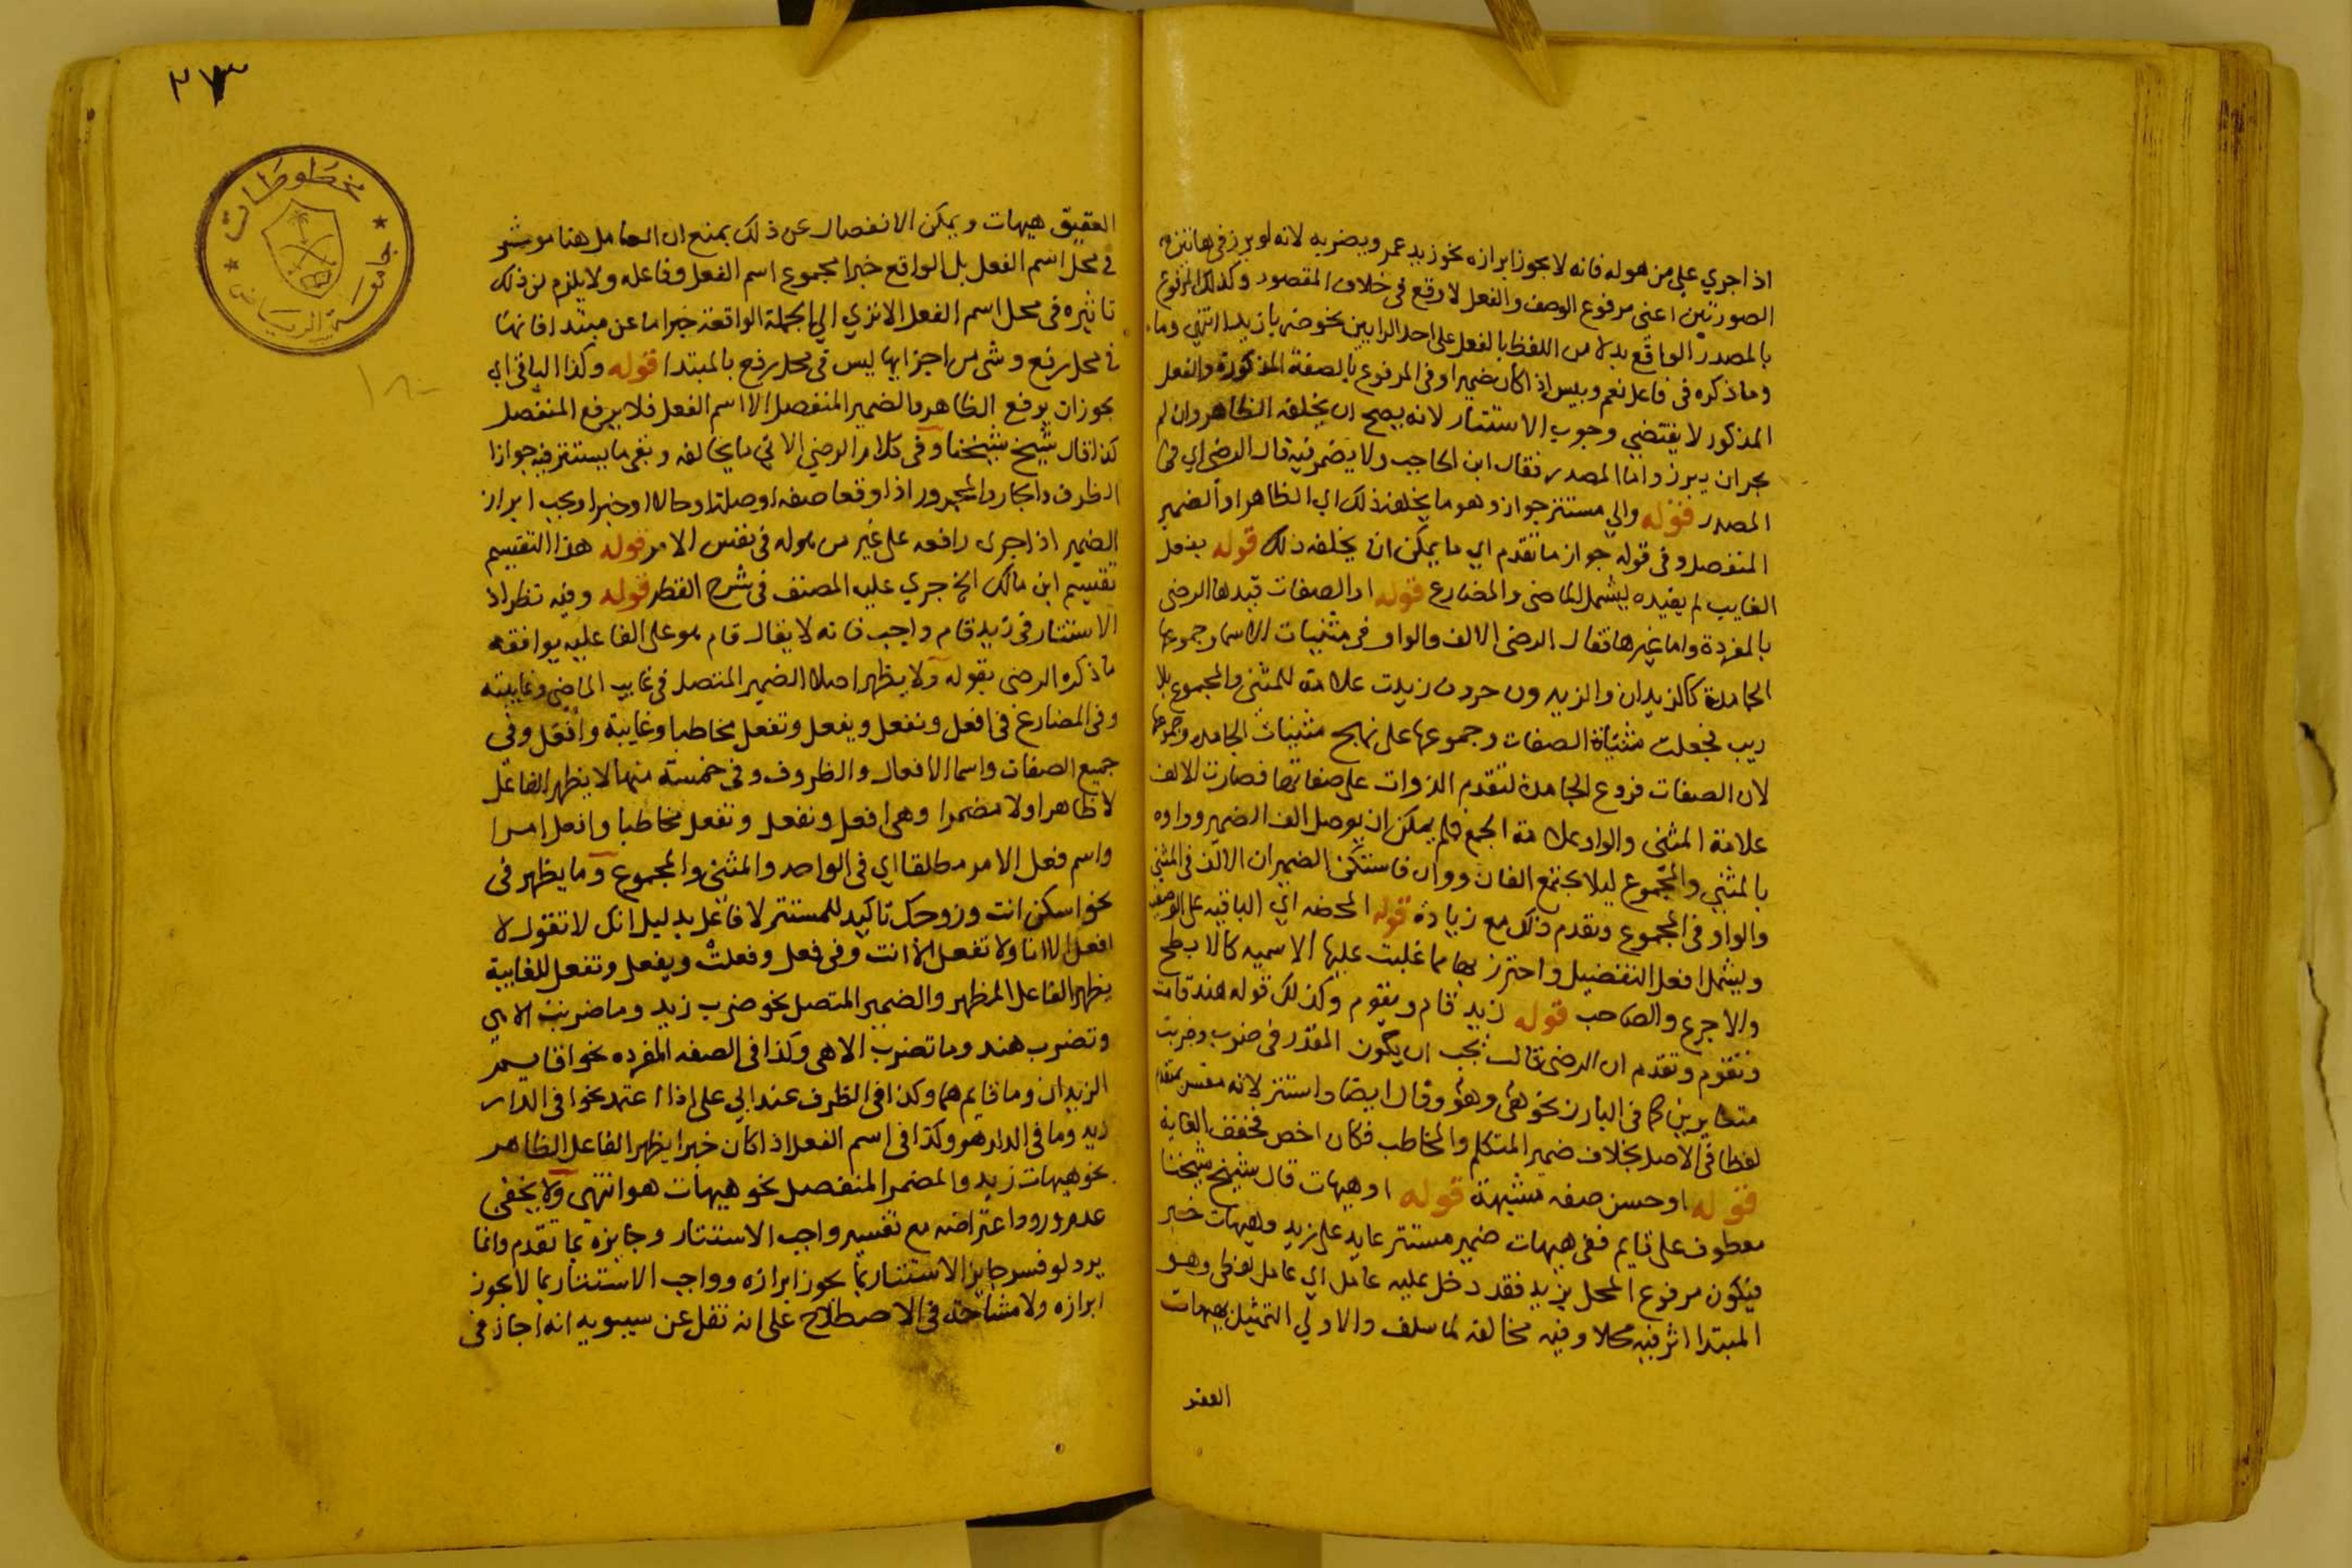 اذا اجري على من هوله فانه لا يجوز ابرازه نحو زيد عمرو يضربه لانه لو برز في هاتين
الصورتين اعني مرفوع الوصف والفعل لا وقع في خلاف المقصود وكذلك المرفوع
بالمصدر الواقع بدلا من اللفظ بالفعل على احد الرايين نحو ضربا زيدا انتهى وما
وما ذكره في فاعل نعم وبيس اذا كان ضميرا وفي المرفوع بالصفة المذكورة والفعل
المذكور لا يقتضي وجوب الاستتار لانه يصح ان يخلفه الظاهر وان لم
يجز ان يبرز واما المصدر فقال ابن الحاجب ولا يضمر فيه قال الرضي اي في
المصدر قوله والى مستتر جوازا وهو ما يخلفه ذلك اي الظاهر او الضمير
المنفصل وفي قوله جوازا ما تقدم اي ما يمكن ان يخلفه ذلك قوله بفعل
الغايب لم يقيده ليشمل الماضي والمضارع قوله او الصفات قيدها الرضي
بالمفردة واما غيرها فقال الرضي الالف والواو في مثنيات الاسما وجموعها
الجامدة كالزيدان والزيدون حروف زيدت علامة للمثنى والمجموع بلا
ريب فجعلت مثناة الصفات وجموعها على نهج مثنيات الجامدة وجموعها
لان الصفات فروع الجامدة لتقدم الذوات على صفاتها فصارت الالف
علامة المثنى والواو علامة الجمع فلم يمكن ان يوصل الف الضمير وواوه
بالمثنى والمجموع ليلا يجتمع الفان وواوان فاستكن الضميران الالف في المثنى
والواو في المجموع وتقدم ذلك مع زيادة قوله المحضة اي الباقية على الوصفية
ويشمل افعل التفضيل واحترز بها مما غلبت عليها الاسميه كالابطح
والاجرع والصاحب قوله زيد قام ويقوم وكذلك قوله هند قامت
وتقوم وتقدم ان الرضي قال يجب ان يكون المقدر في ضرب وضربت
متغايرين كما في البارز نحو هي وهو وقال ايضا واستتر لانه مفسر بمتقدم
لفظا في الاصل بخلاف ضمير المتكلم والمخاطب فكان اخص فخفف الغايه
قوله او حسن صفه مشبهة قوله او هيهات قال شيخ شيخنا
معطوف على قايم ففي هيهات ضمير مستتر عايد على زيد وهيهات خبر
فيكون مرفوع المحل بزيد فقد دخل عليه عامل اي عامل لفظي وهو
المبتدا اثر فيه محلا وفيه مخالفه لما سلف والاولى التمثيل بهيهات
العقيق
العقيق هيهات ويمكن الانفصال عن ذلك بمنع ان العامل هنا موثر
في محل اسم الفعل بل الواقع خبرا مجموع اسم الفعل وفاعله ولا يلزم من ذلك
تاثيره في محل اسم الفعل الا تري الى الجملة الواقعة خبرا ما عن مبتدا فانها
في محل رفع وشى من اجزايها ليس في محل رفع بالمبتدا قوله وكذا الباقي اي
يجوز ان يرفع الظاهر والضمير المنفصل الا اسم الفعل فلا يرفع المنفصل
كذا قال شيخ شيخنا وفي كلام الرضي الاتي ما يخالفه وبقى ما يستتر فيه جوازا
الظرف والجار والمجرور اذا وقعا صفه او صلة او حالا او خبرا ويجب ابراز
الضمير اذا جرى رافعه على غير من هو له في نفس الامر قوله هذا التقسيم
تقسيم ابن مالك الخ جري عليه المصنف في شرح القطر قوله وفيه نظر اذ
الاستتار في زيد قام واجب فانه لا يقال قام هو على الفاعليه يوافقه
ما ذكره الرضي بقوله ولا يظهر اصلا الضمير المتصل في غايب الماضي وغايبته
وفي المضارع في افعل ونفعل ويفعل وتفعل مخاطبا وغايبة وافعل وفي
جميع الصفات واسما الافعال والظروف وفي خمسة منها لا يظهر الفاعل
لا ظاهرا ولا مضمرا وهي افعل ونفعل وتفعل مخاطبا وافعل امرا
واسم فعل الامر مطلقا اي في الواحد والمثنى والمجموع وما يظهر في
نحو اسكن انت وزوجك تاكيد للمستتر لا فاعل بدليل انك لا تقول لا
افعل الا انا ولا تفعل الا انت وفي فعل وفعلت ويفعل وتفعل للغايبة
يظهر الفاعل المظهر والضمير المتصل نحو ضرب زيد وما ضربت الا هي
وتضرب هند وما تضرب الا هي وكذا في الصفه المفرده نحو اقايم
الزيدان وما قايم هما وكذا في الظرف عند ابي على اذا اعتمد نحو افي الدار
زيد وما في الدار هو وكذا في اسم الفعل اذا كان خبرا يظهر الفاعل الظاهر
نحو هيهات زيد والمضمر المنفصل نحو هيهات هو انتهى ولا يخفى
عدم ورود اعتراضه مع تفسير واجب الاستتار وجايزه بما تقدم وانما
يرد لو فسر جايز الاستتار بما يجوز ابرازه وواجب الاستتار بما لا يجوز
ابرازه ولا مشاحة في الاصطلاح على انه نقل عن سيبويه انه اجاز في
٢٧٣
مخطوطات
جامعة الرياض